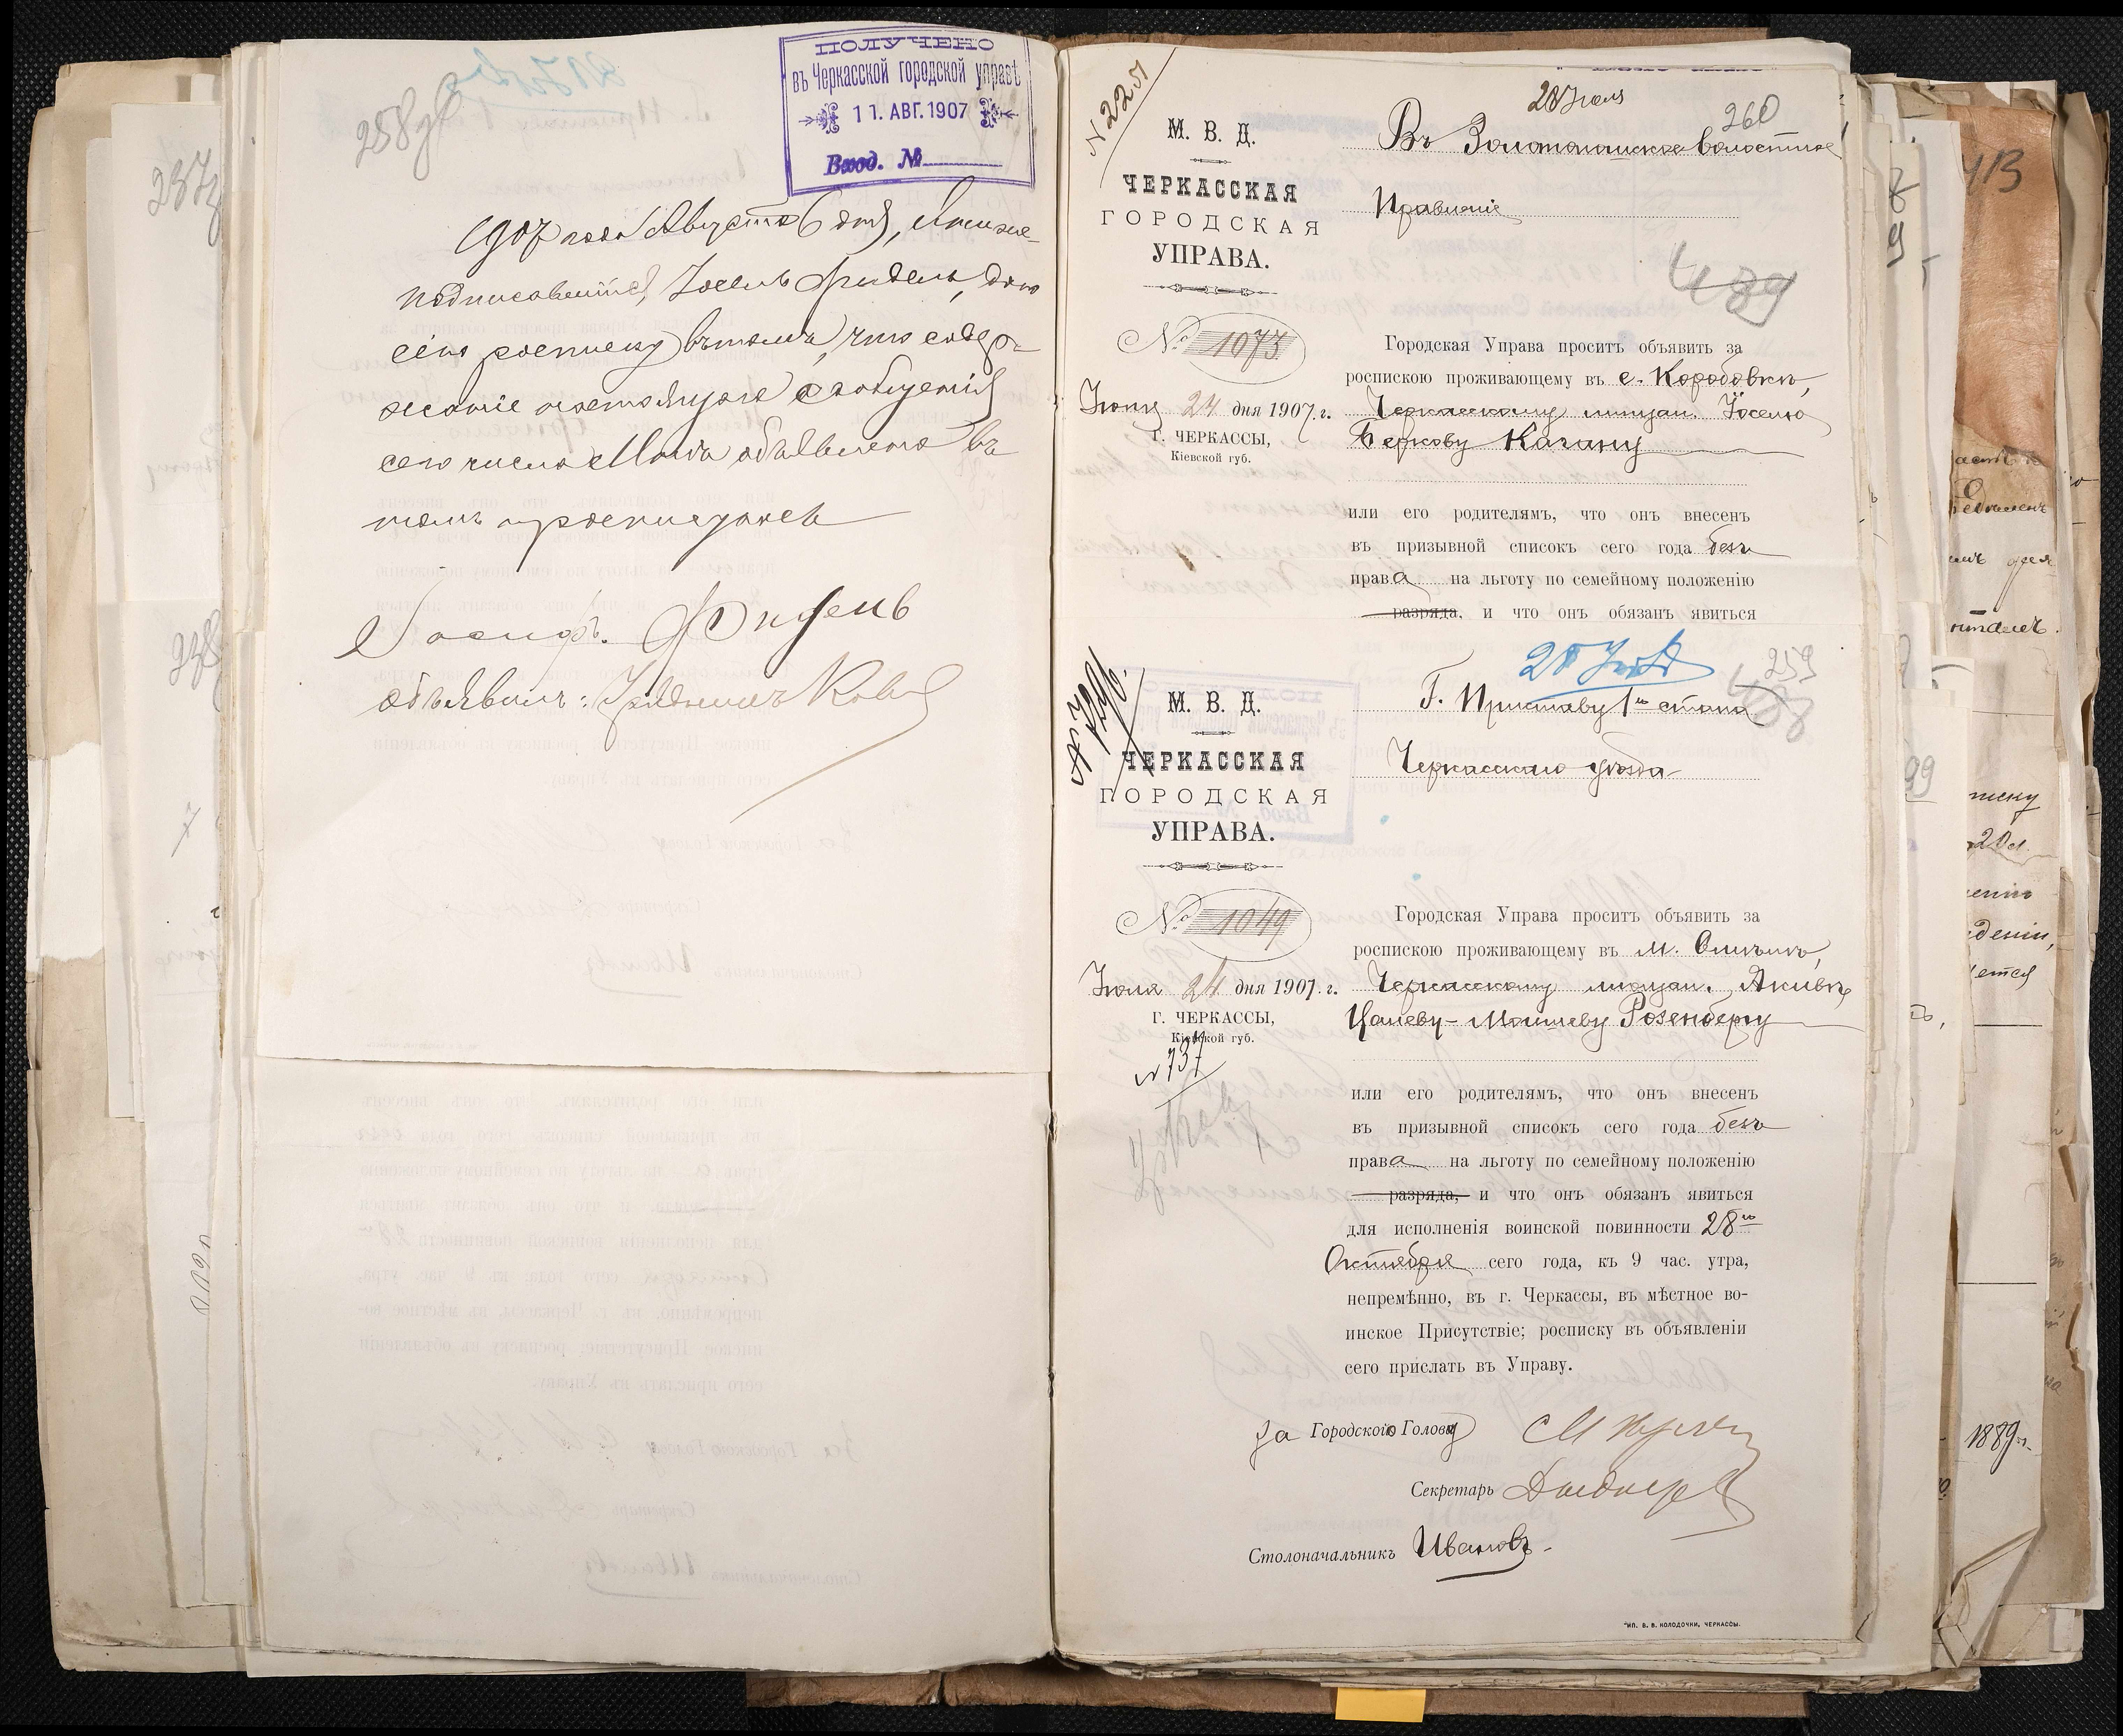 258
ПОЛУЧЕНО
въ Черкасской городской управѣ
11. АВГ. 1907
Вход. №
1907 года Августа 6 дня, я ниже-
подписавшійся, Іосель Фидель, даю
сію росписку въ томъ, что содер-
жаніе
сего числа мнѣ объявлено въ
томъ и росписуюсь
Іосифъ. Фидель
объявилъ: Урядникъ
N 2251
М. В. Д.
ЧЕРКАССКАЯ
ГОРОДСКАЯ
УПРАВА.
№ 1073
Іюля 24 дня 1907 г.
Г. ЧЕРКАССЫ,
Кіевской губ.
28 Іюля
260
Въ Золотоношское волостное
Правленіе
489
Городская Управа проситъ объявить за
роспискою проживающему въ с. Коробовкѣ,
Черкасскому мѣщан. Іоселю
Беркову Кагану
или его родителямъ, что онъ внесенъ
въ призывной списокъ сего года безъ
права на льготу по семейному положенію
разряда, и что онъ обязанъ явиться
М. В. Д.
ЧЕРКАССКАЯ
ГОРОДСКАЯ
УПРАВА.
№ 1049
Іюля 24 дня 1907 г.
Г. ЧЕРКАССЫ,
Кіевской губ.
N 737
259
488
Г. Приставу 1го стана
Черкасскаго уѣзда
Городская Управа проситъ объявить за
роспискою проживающему въ м.
Черкасскому мѣщан. Акивѣ
Розенбергу
или его родителямъ, что онъ внесенъ
въ призывной списокъ сего года безъ
права на льготу по семейному положенію
разряда, и что онъ обязанъ явиться
для исполненія воинской повинности 28го
Октября сего года, къ 9 час. утра,
непремѣнно, въ г. Черкассы, въ мѣстное во-
инское Присутствіе; росписку въ объявленіи
сего прислать въ Управу.
За Городского Голову
Секретарь
Столоначальникъ Ивановъ.
ТИП. В. В. КОЛОДОЧКИ, ЧЕРКАССЫ.
413
1889 г.